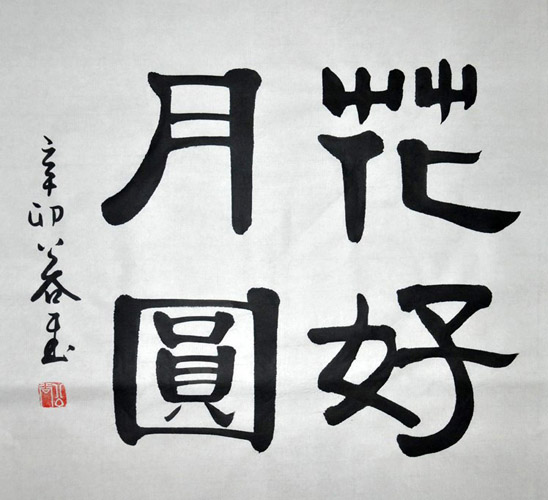 花好
月圓
辛卯